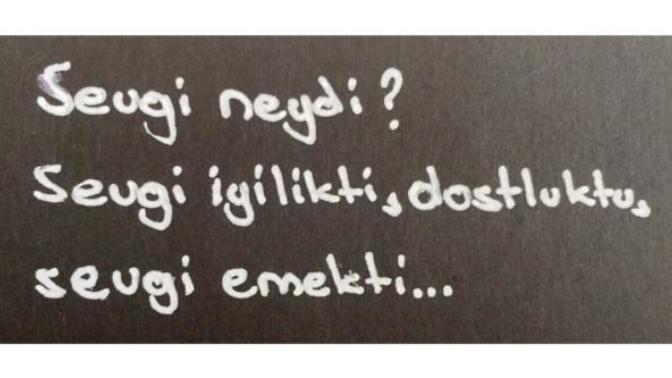 Sevgi neydi?
Sevgi iyilikti, dostluktu,
sevgi emekti...